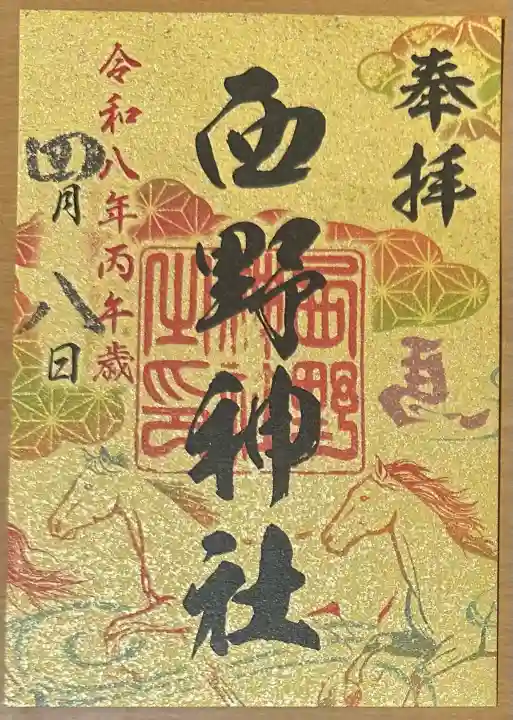 奉拝
馬
西野神社
西野神社之印
令和八年丙午歳
四月八日